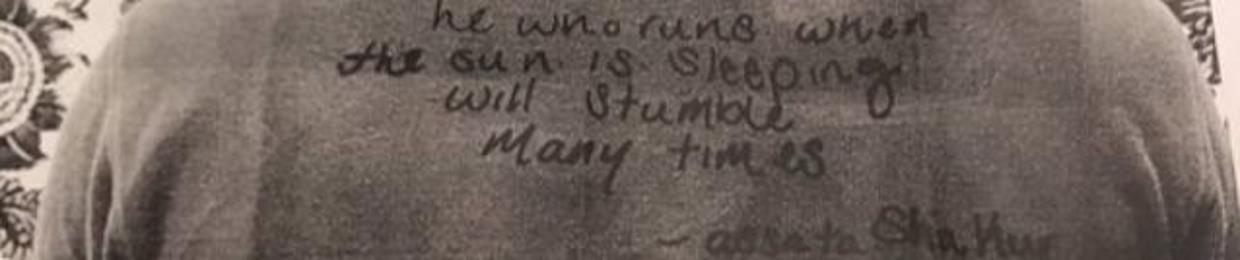 he who runs when
the sun is Sleeping
will Stumble
Many times
- assata Shakur